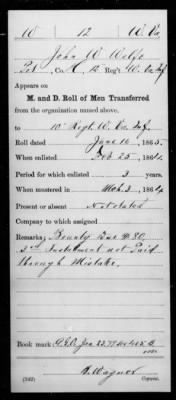 W 12 W. Va.
John W. Wolfe
Pvt., Co. H, 12 Reg't W. Va. Inf.
Appears on
M. and D. Roll of Men Transferred
from the organization named above,
to 10 Regt. W. Va. Inf.
Roll dated June 16, 1865.
When enlisted Feb 25, 1864.
Period for which enlisted 3 years.
When mustered in Mch 3, 1864
Present or absent Not stated
Company to which assigned
Remarks: Bounty Due $80
3rd Instalment not Paid
through Mistake.
Book mark:
(342) Wagner
Copyist.